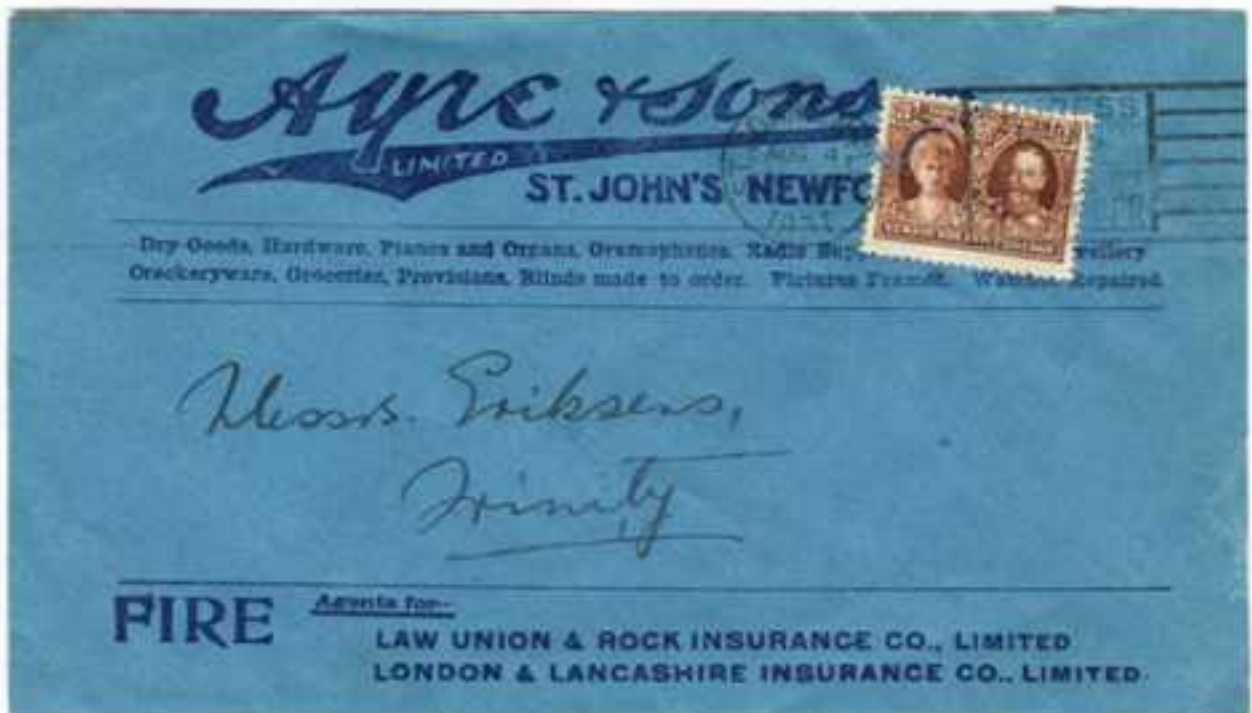 Ayre & Sons
LIMITED
ST. JOHN'S NEWFO
Dry Goods, Hardware, Pianos and Organs, Gramophones, Radio
Crockeryware, Groceries, Provisions, Blinds made to order. Pictures Framed. Repaired.
Messrs. Eriksens,
Trinity
FIRE
Agents for--
LAW UNION & ROCK INSURANCE CO., LIMITED
LONDON & LANCASHIRE INSURANCE CO., LIMITED.